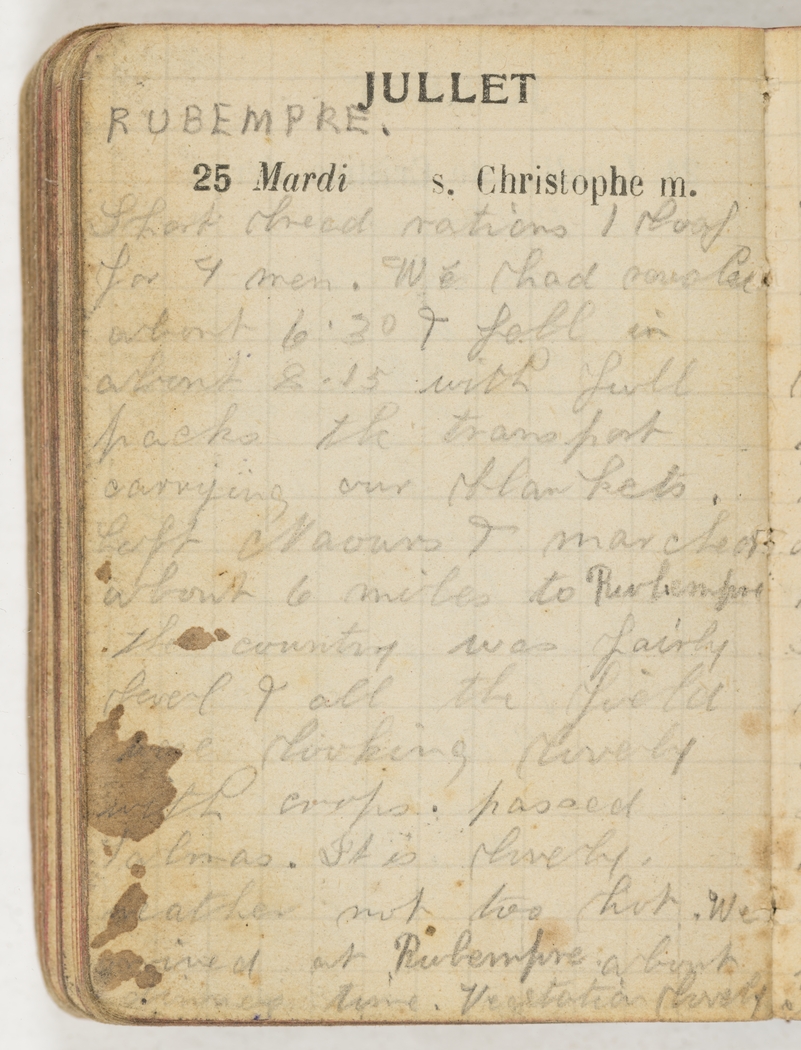 JULLET
RUBEMPRE.
25 Mardi s. Christophe m.
Short bread rations 1 loaf
for 4 men. We had
about 6.30 & fell in
about 8.15 with full
packs the transport
carrying our blankets.
Left Naours & marched
about 6 miles to Rubempre
. the country was fairly
level & all the field
are looking lovely
with crops. passed
Talmas. It is lovely.
weather not too hot. We
arrived at Rubempre about
dinner time. Vegetation lovely.